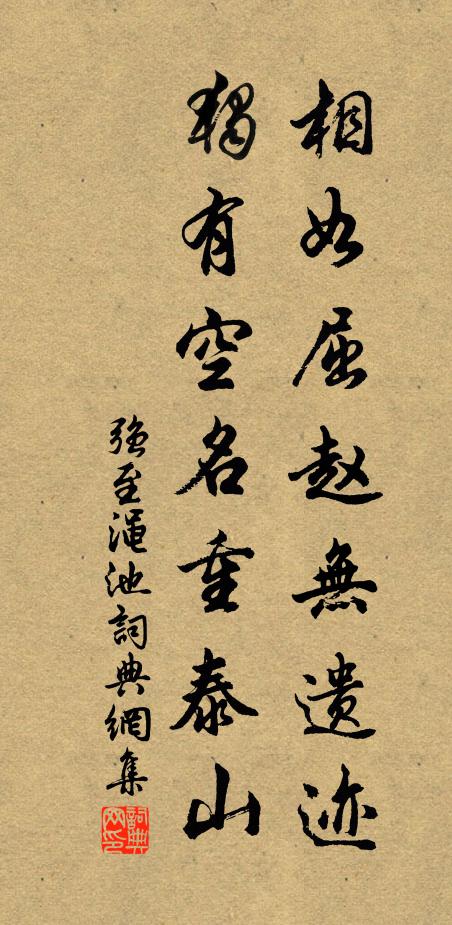 相如屈赵無遗迹
獨有空名重泰山
强至渑池詞典網集
詞典网印